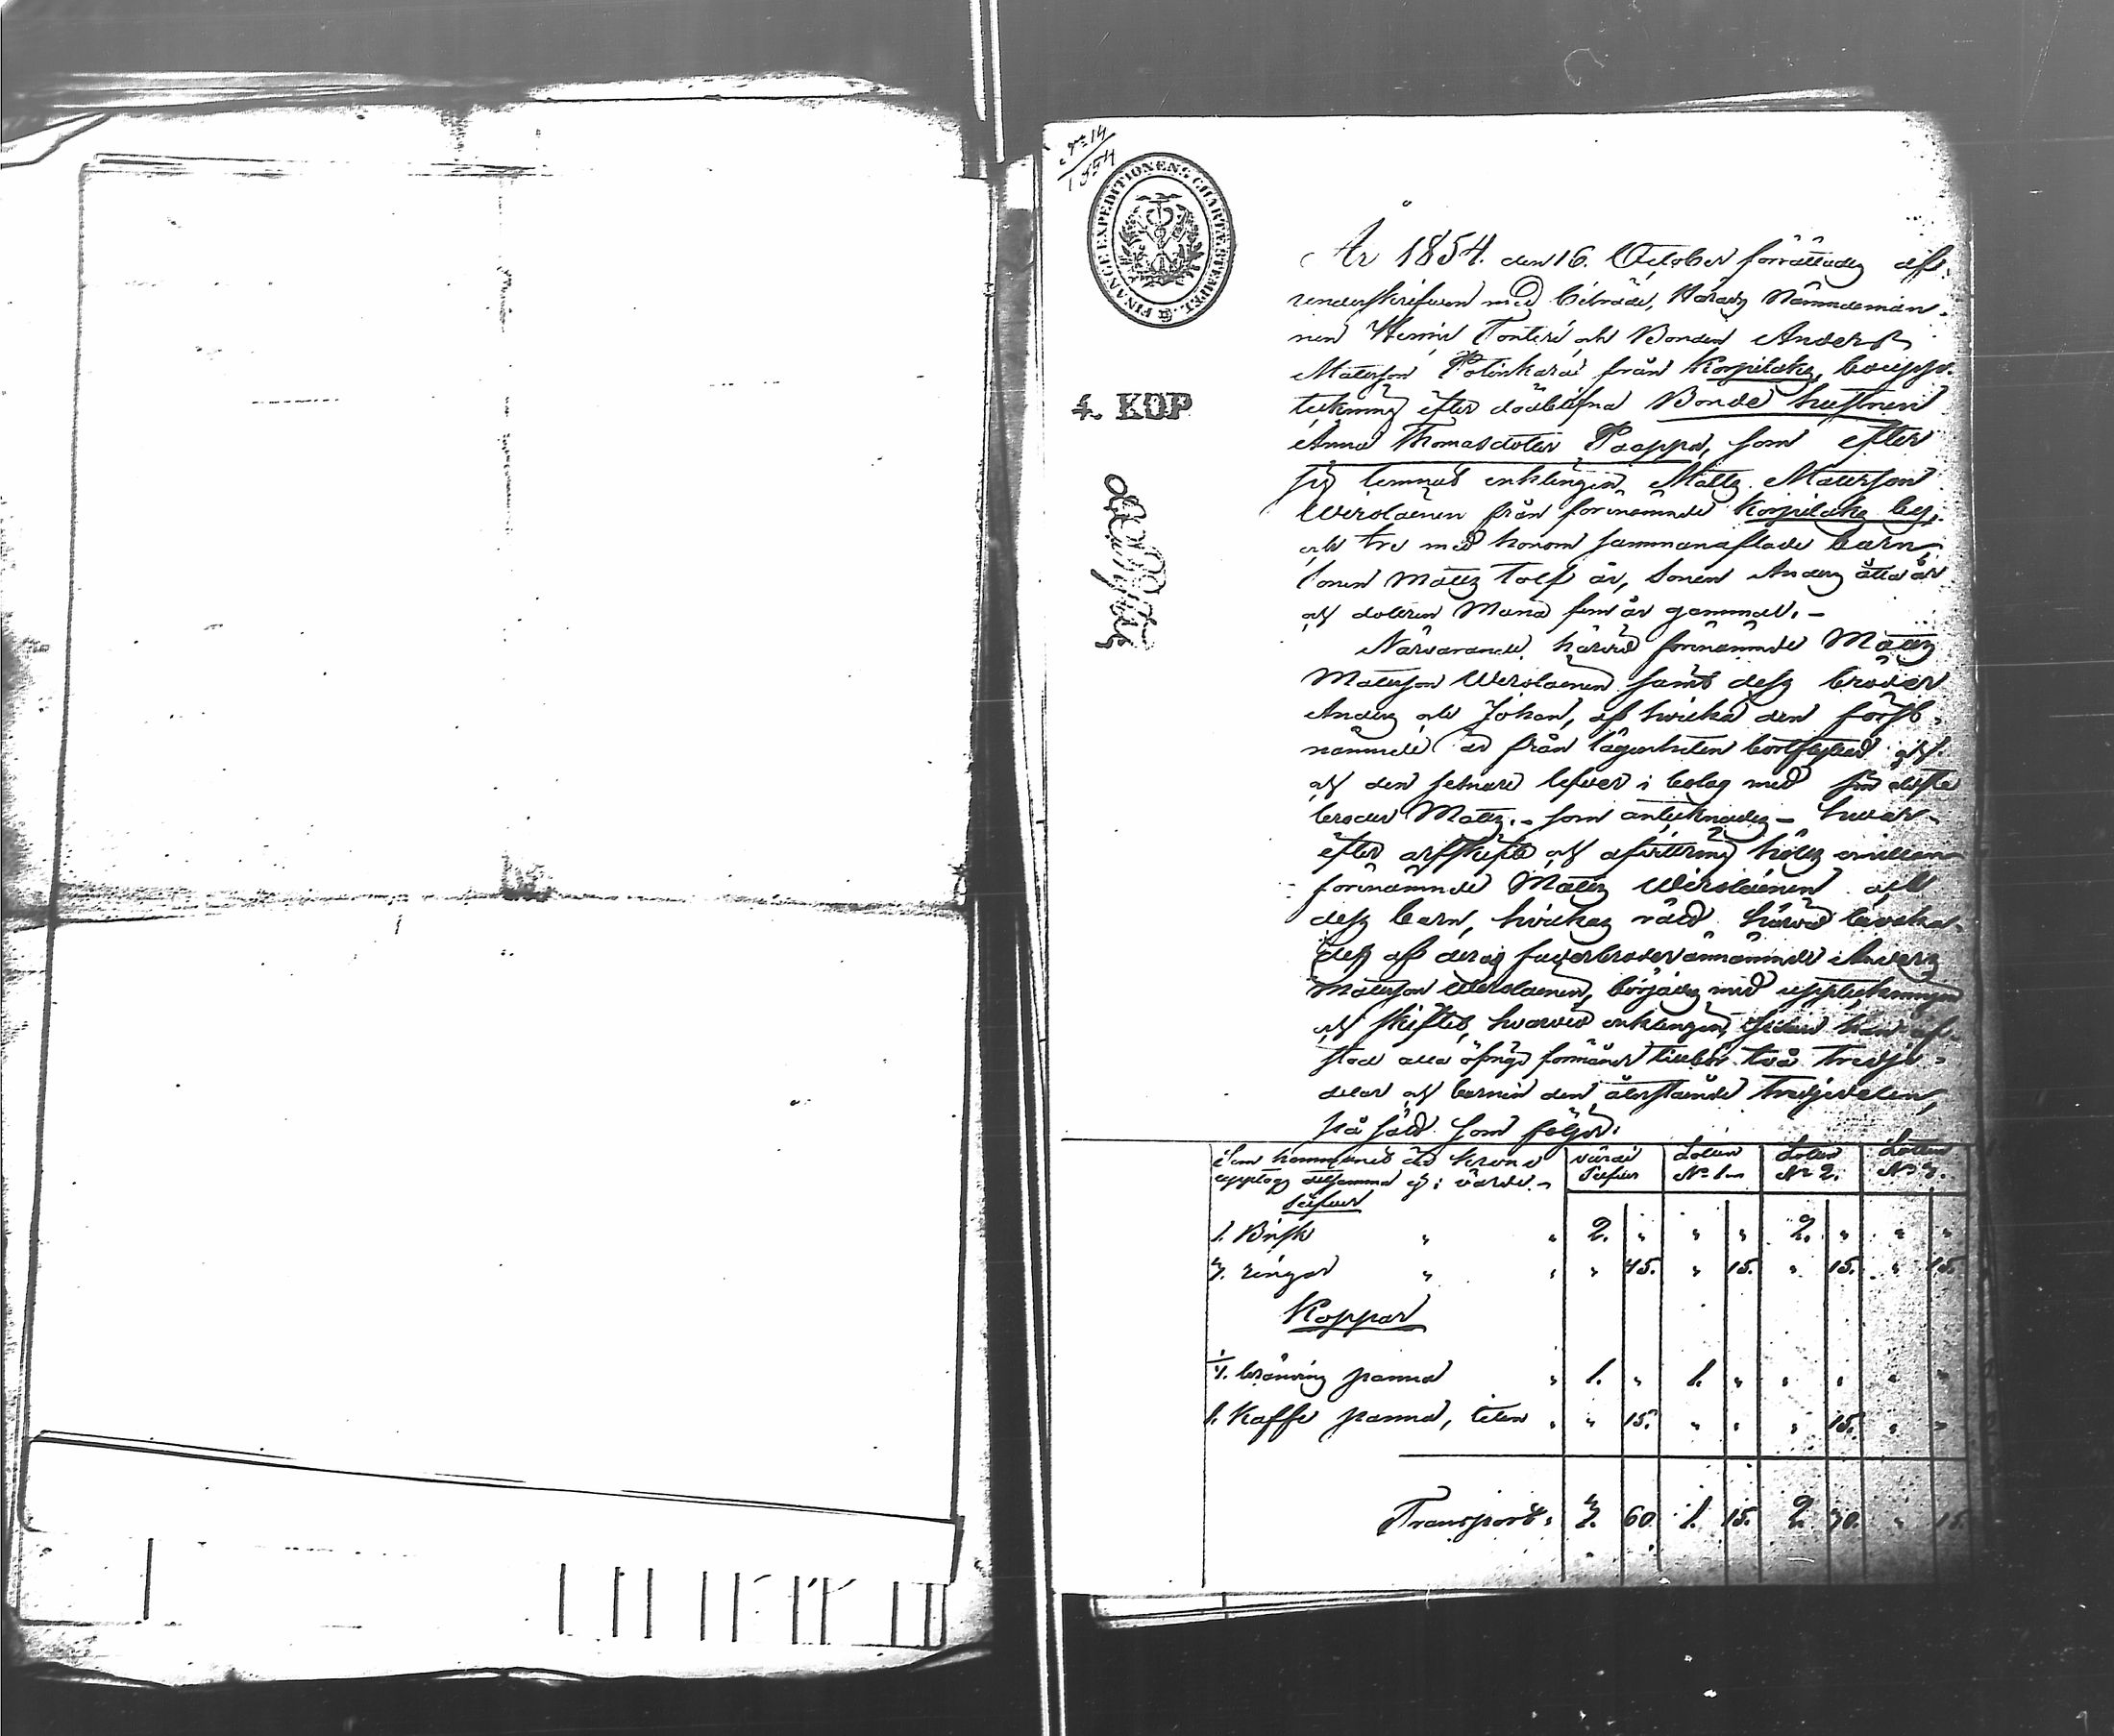 No 14
1854
FINANCE EXPEDITIONENS CHARTÆ STEMPEL
4. KOP
År 1854. den 16. October förrättades af
underskrifven med biträde, Härads Nämndemän-
nen Henric Tonteri och Bonden Anders
Matsson Potinkara från Korpilaks, boupp-
tekning efter dödblefna Bonde hustrun
Anna Thomasdoter Paappa, som efter
sig lemnat enklingen Matts Matsson
Wirolainen från förenämnde Korpilaks by,
och tre med honom sammanaflade barn,
sonen Matts tolf år, Sonen Anders åtta år
och dotren Maria fem år gammal. -
Närvarande härvid förenämnde Matts
Matsson Wirolainen samt dess bröder
Anders och Johan, af hvilka den först-
nämnde är från lägenheten bortflyttad och
och den senare lefver i bolag med sin äldste
broder Matts. - som antecknades - hvar-
efter arfskifte och afvittring hölts emellan
förenämnde Matts Wirolainen och
dess barn, hvilkas rätt härvid bevaka-
des af deras faderbroder ännämnde Anders
Matsson Wirolainen, börjades med uppteckningen
och skiftet, hvarvid enklingen, sedan han af-
stod alla öfriga förmåner tillkom två tredje-
delar och barnen den återstående tredjedelen,
på sätt som följer.
värde Silfver Lotten No 1 Lotten No 2. Lotten No 3.
Silfver
1. Brisk " " 2. " " " 2. " " "
3. ringar " " " 45. " 15. " 15. " 15.
Koppar
1/4. bränvins panna " 1. " 1. " " " " "
1. Kaffe panna, liten " " 15. " " " 15. " "
Transport: 3. 60. 1. 15. 2. 30. " 15.